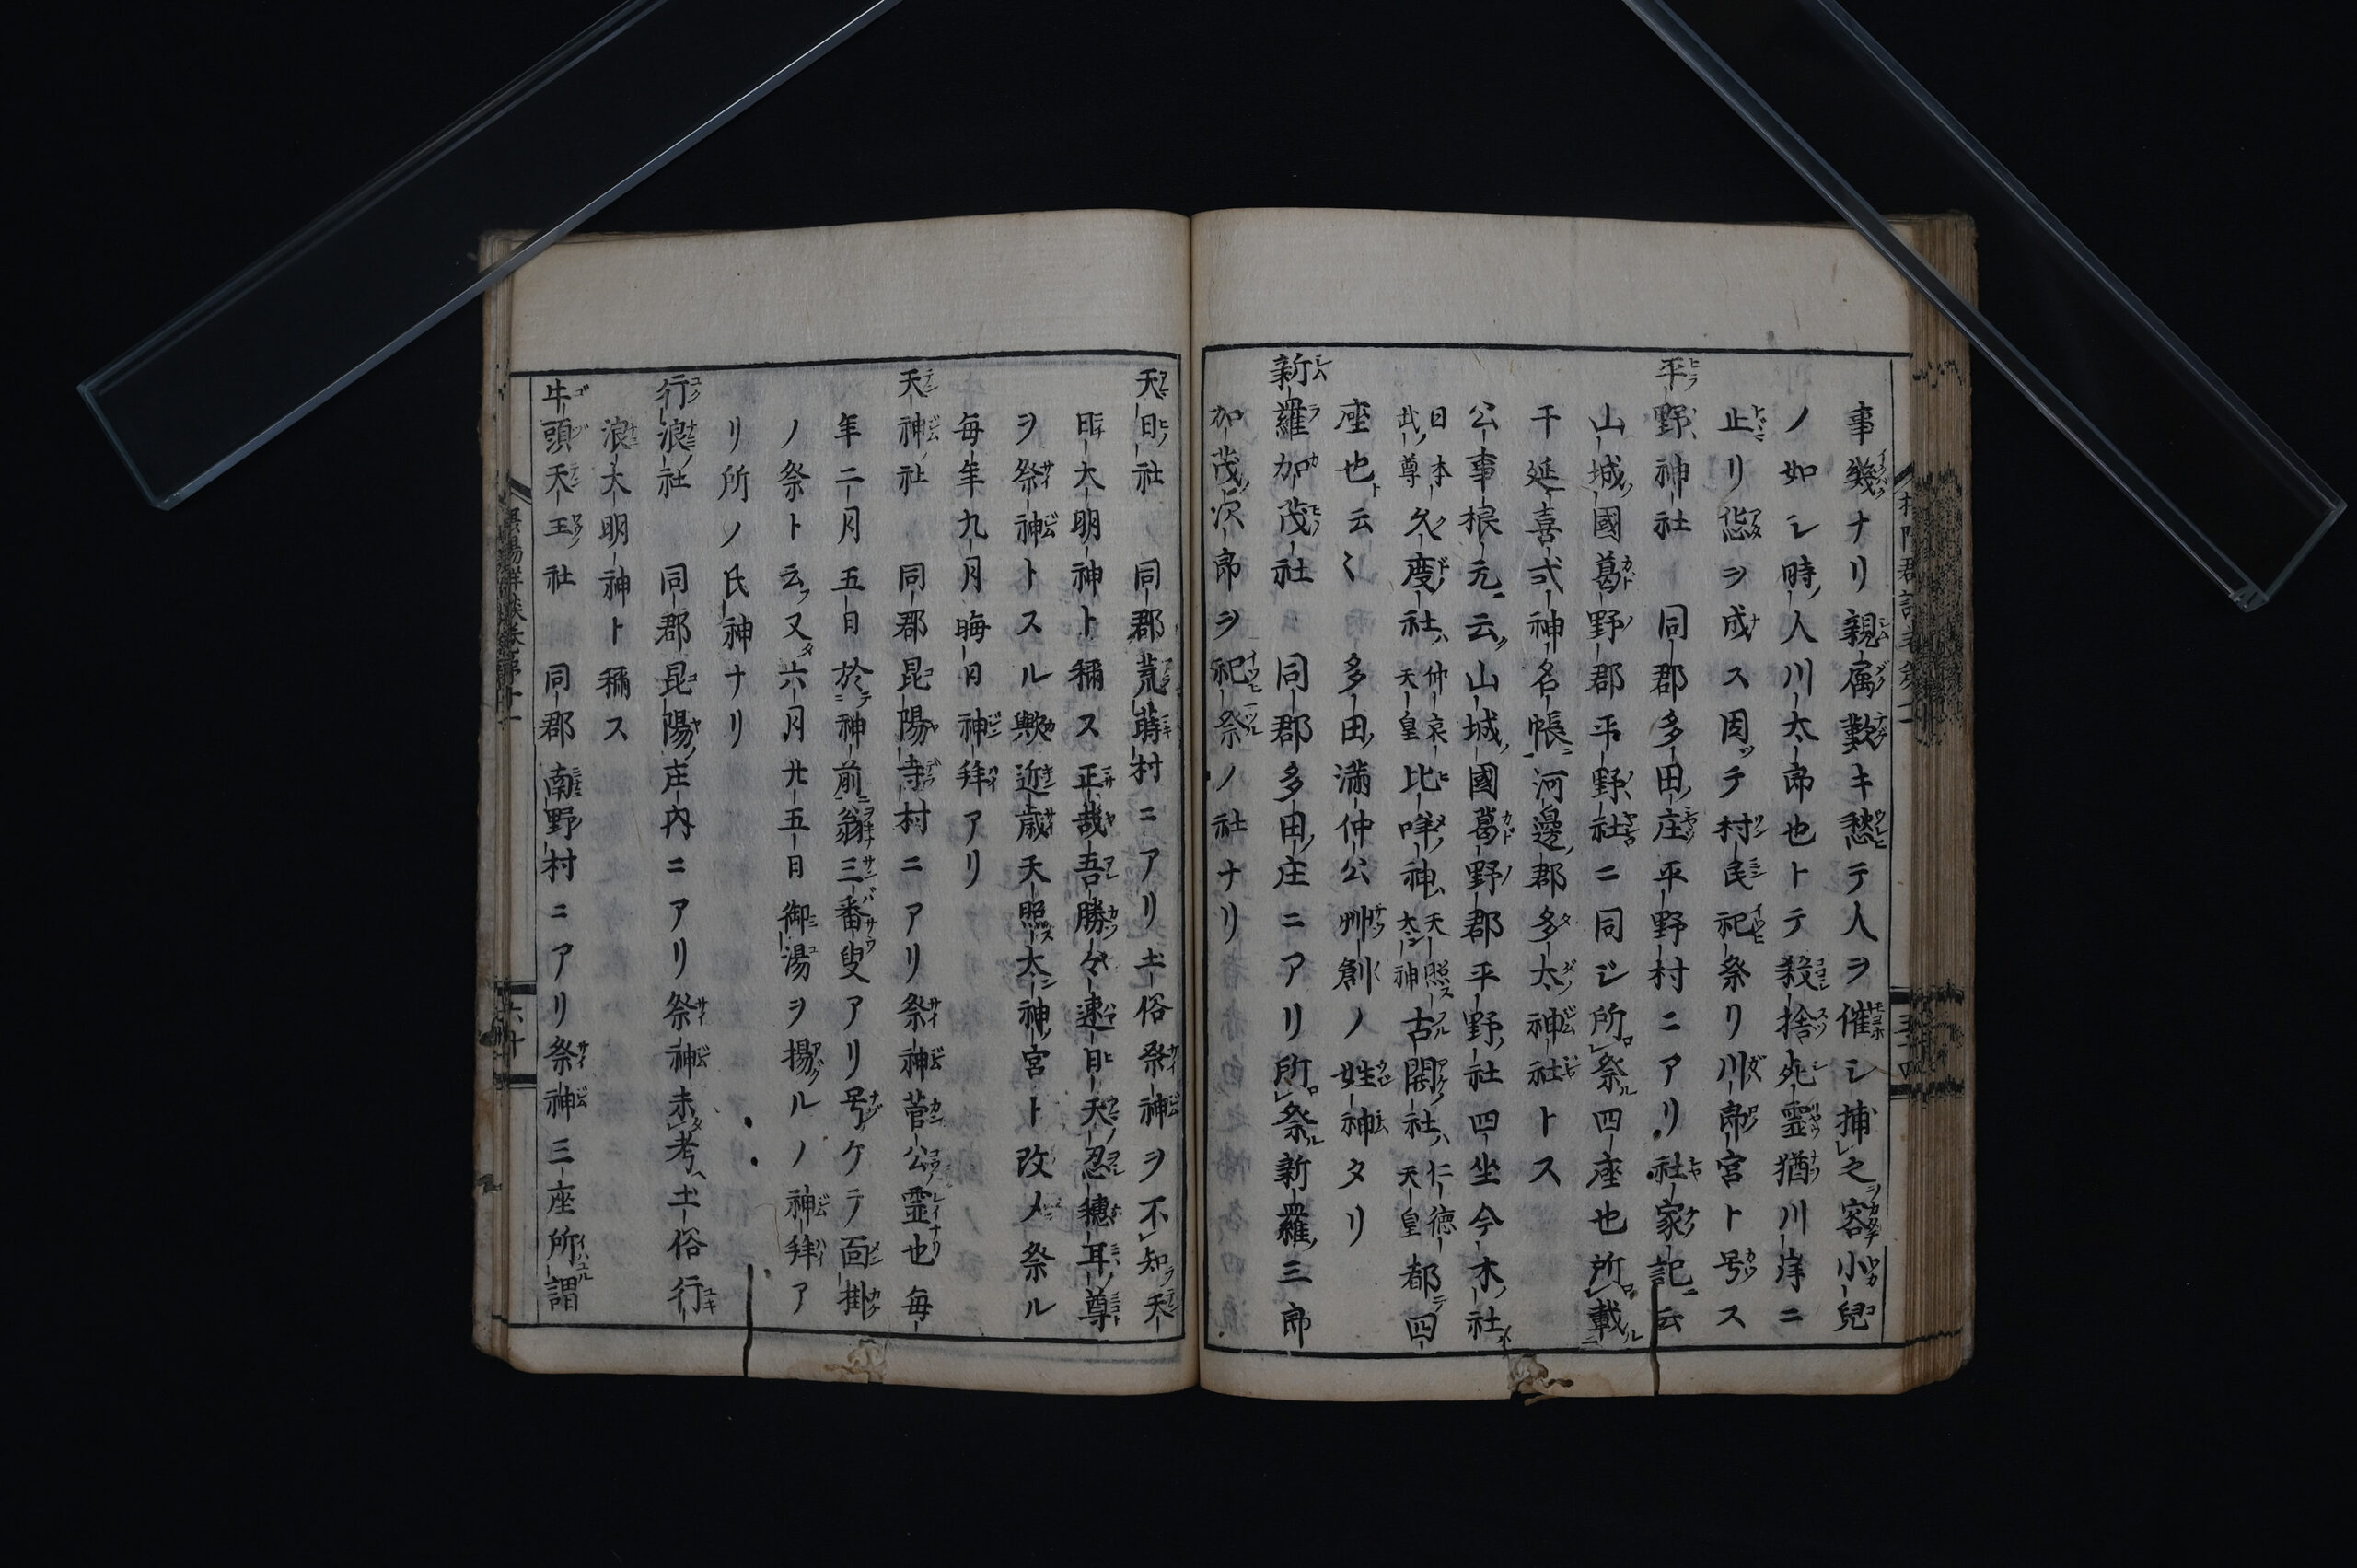 事幾ナリ親属歎キ愁テ人ヲ催シ捕之容小兒
ノ如シ時人川太郎也トテ殺捨死霊猶川岸ニ
止リ恠ヲ成ス因テ村民祀祭リ川郎宮ト号ス
平野神社 同郡多田庄平野村ニアリ社家記云
山城國葛野郡平野社ニ同シ所祭四座也所載
于延喜式神名帳河邊郡多太神社トス
公事根元云山城國葛野郡平野社四坐今木社
日本武尊久度社仲哀天皇比咩神天照大神古開社仁徳天皇都四
座也云〻 多田満仲公州創ノ姓神タリ
新羅加茂社 同郡多田庄ニアリ所祭新羅三郎
加茂次郎ヲ祀祭ノ社ナリ
天日社 同郡荒蒔村ニアリ土俗祭神ヲ不知天
日大明神ト稱ス正哉吾勝々速日天忍穗耳尊
ヲ祭神トスル歟近歳天照太神宮ト改メ祭ル
毎年九月晦日神拜アリ
天神社 同郡昆陽寺村ニアリ祭神菅公霊也毎
年二月五日於神前翁三番叟アリ号ケテ面掛
ノ祭ト云又六月廿五日御湯ヲ揚ルノ神拜ア
リ所ノ氏神ナリ
行浪社 同郡昆陽庄内ニアリ祭神未考土俗行
浪大明神ト稱ス
牛頭天王社 同郡南野村ニアリ祭神三座所謂
六十